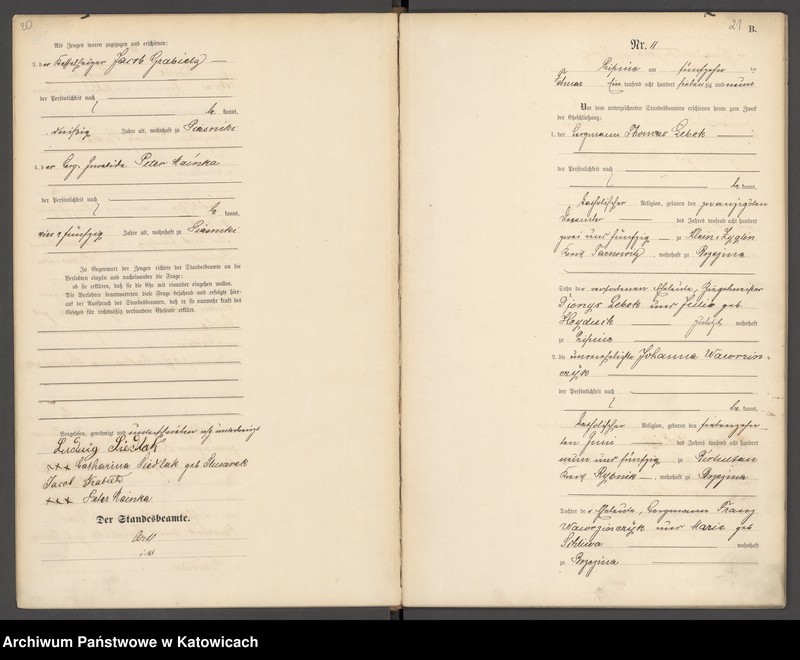 20
Als Zeugen waren zugezogen und erschienen:
3. der Kesselheizer Jacob Grabietz
der Persönlichkeit nach
be kannt,
dreißig Jahre alt, wohnhaft zu Piasniki
4. der Berg-Invalide Peter Mainka
der Persönlichkeit nach
be kannt,
vier & fünfzig Jahre alt, wohnhaft zu Piasniki
In Gegenwart der Zeugen richtete der Standesbeamte an die
Verlobten einzeln und nacheinander die Frage:
ob sie erklären, daß sie die Ehe mit einander eingehen wollen.
Die Verlobten beantworteten diese Frage bejahend und erfolgte hier-
auf der Ausspruch des Standesbeamten, daß er sie nunmehr kraft des
Gesetzes für rechtmäßig verbundene Eheleute erkläre.
Vorgelesen, genehmigt und unterschrieben
Ludwig Siedlak
+++ Catharina Siedlak geb Slusarek
Jacob Grabietz
+++ Peter Mainka
Der Standesbeamte.
21 B.
Nr. 11
Lipine am fünfzehn ten
Februar Ein tausend acht hundert siebenzig und neun
Vor dem unterzeichneten Standesbeamten erschienen heute zum Zweck
der Eheschließung:
1. der Bergmann Thomas Lebek
der Persönlichkeit nach
be kannt,
katholischer Religion, geboren den zwanzigsten
Dezember des Jahres tausend acht hundert
zwei und fünfzig zu Klein-Zyglin
Kreis Tarnowitz, wohnhaft zu Brzezina
Sohn der verstorbenen Eheleute, Ziegelmeister
Dionys Lebek und Julie geb.
Heyduck zuletzt wohnhaft
zu Lipine
2. die unverehelichte Johanna Wawrzin-
czyk
der Persönlichkeit nach
be kannt,
katholischer Religion, geboren den siebenzehn-
ten Juni des Jahres tausend acht hundert
neun und fünfzig zu Birtultau
Kreis Rybnik, wohnhaft zu Brzezina
Tochter der Eheleute, Bergmann Franz
Wawrzinczyk und Marie geb
Schliwa wohnhaft
zu Brzezina
Archiwum Państwowe w Katowicach